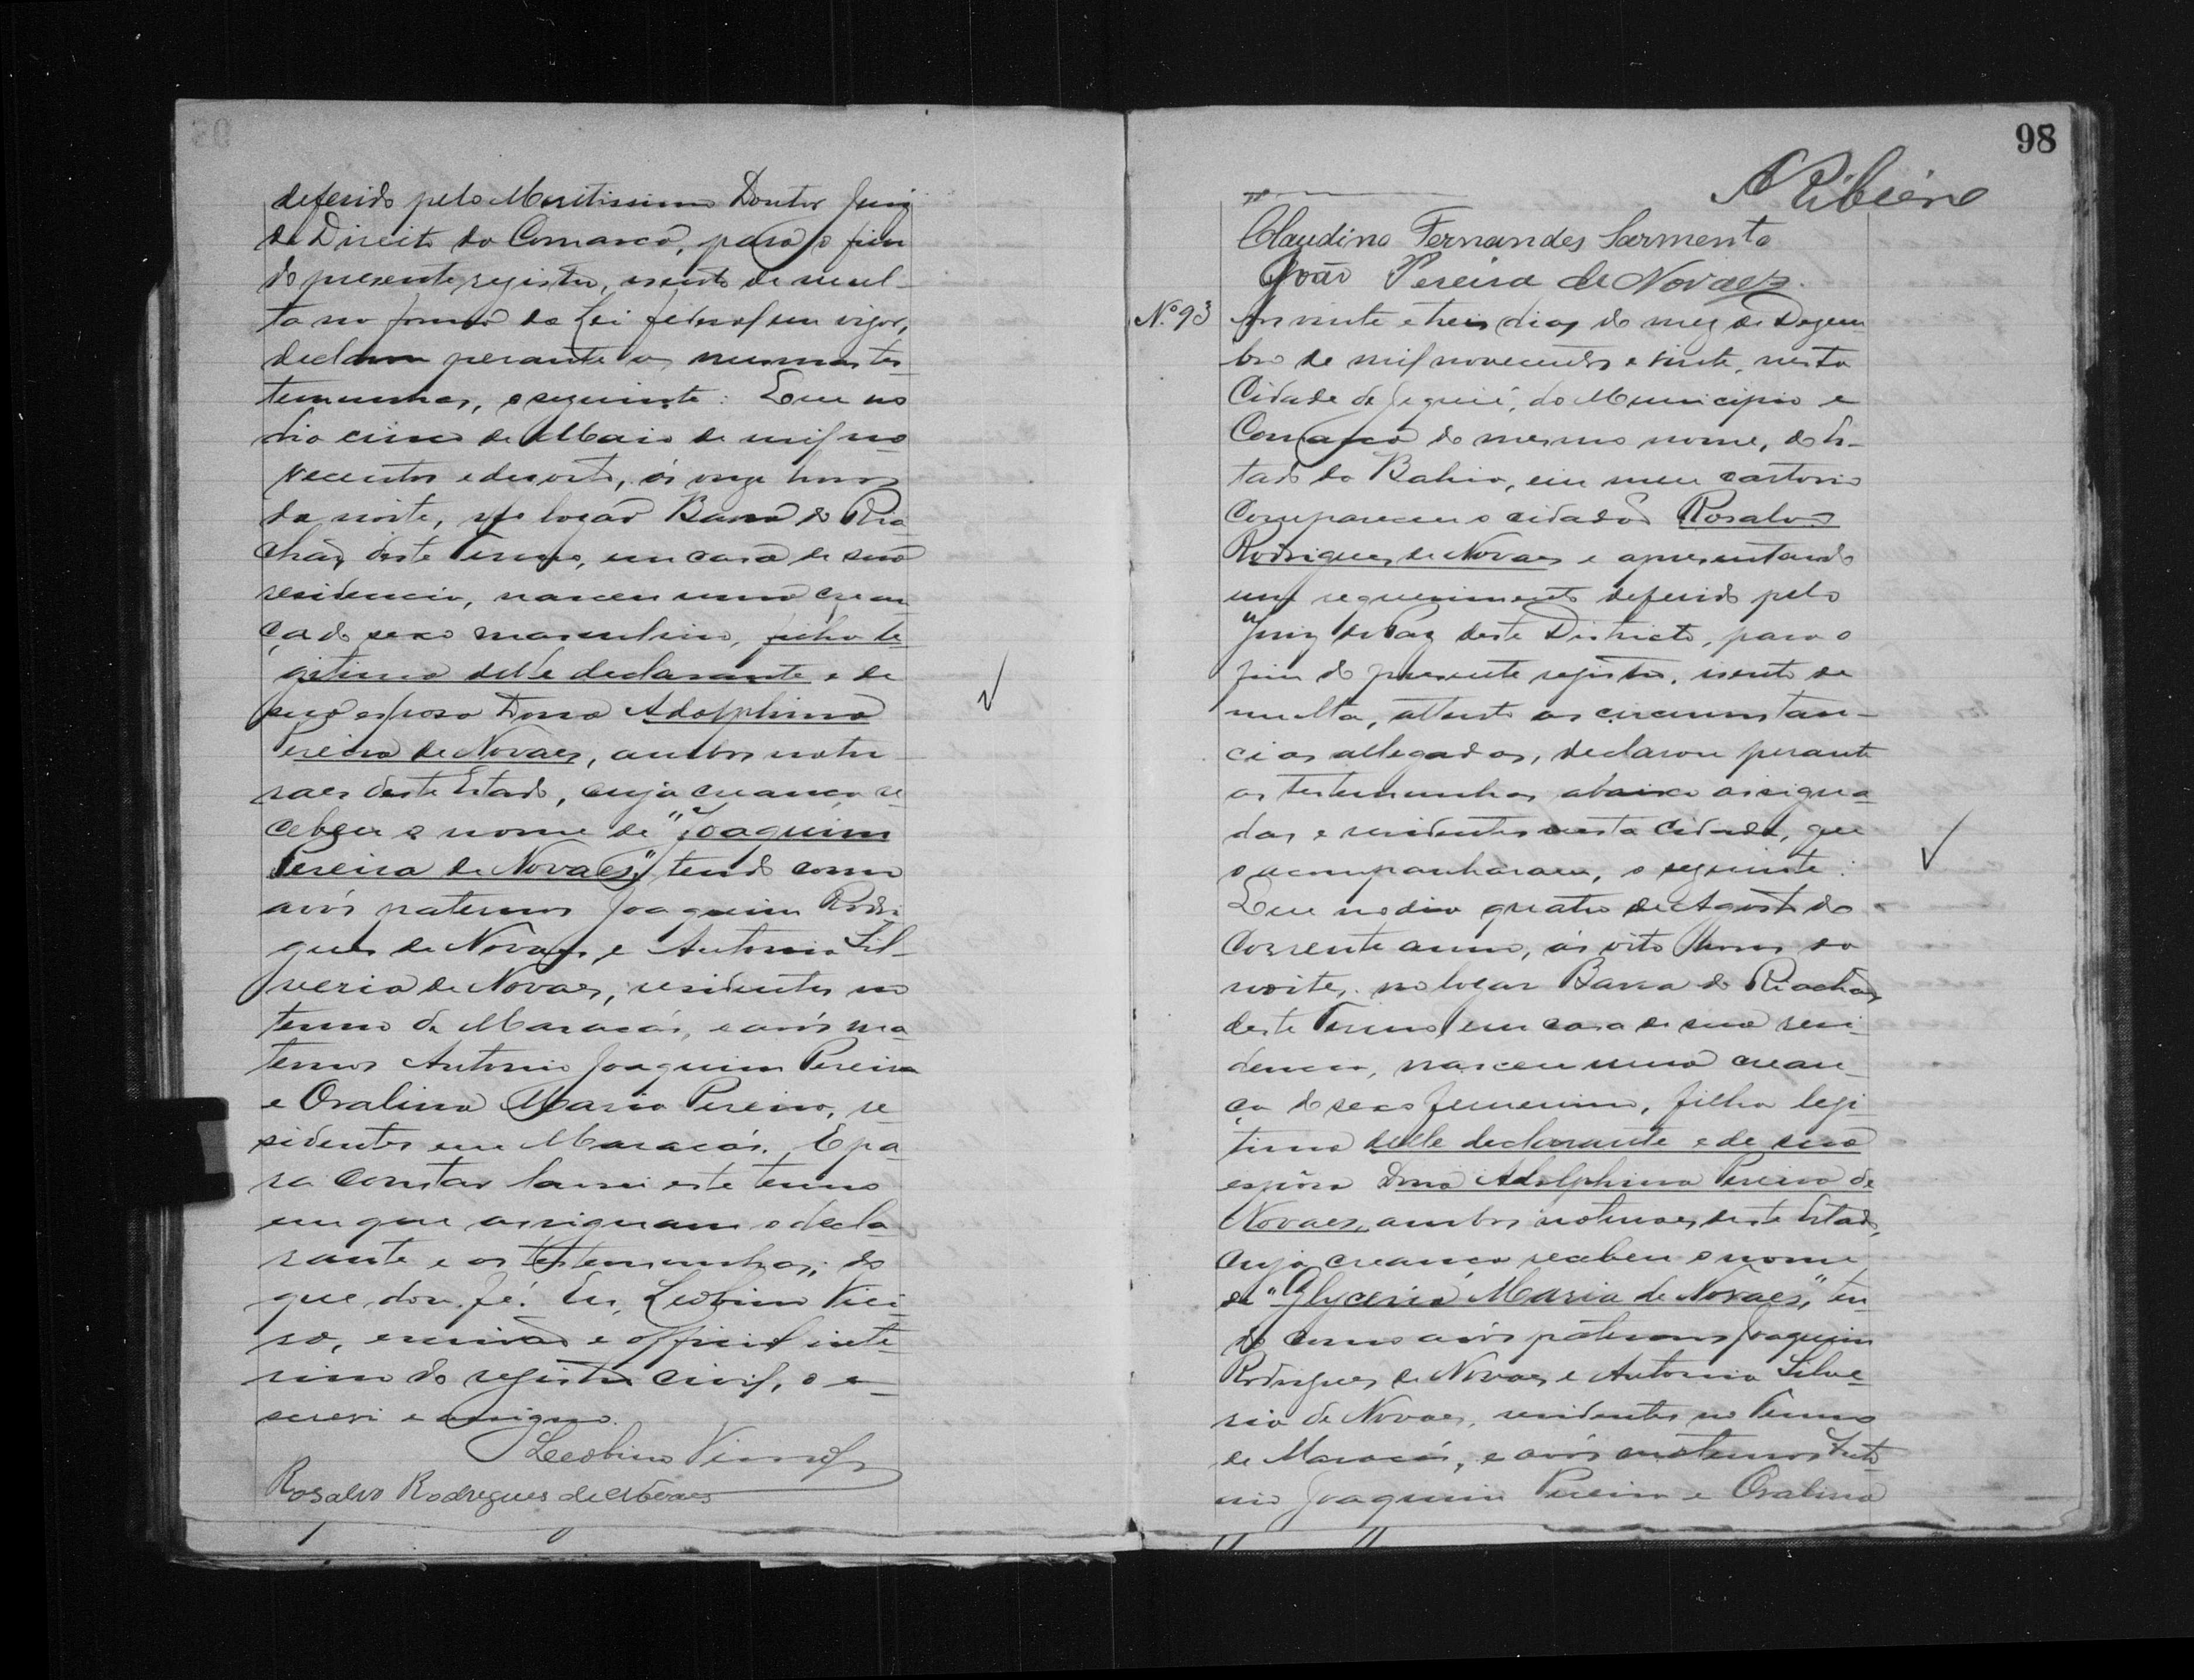 deferido pelo Meritissimo Doutor Juiz
de Direito da Comarca, para o fim
do presente registro, isento de mul-
ta na forma da Lei federal em vigor,
declarou perante as mesmas tes-
temunhas, o seguinte: Que no
dia cinco de Maio de mil no-
vecentos e dezoito, ás onze horas
da noite, no logar Barra do Ria-
chão, deste Termo, em casa de sua
residencia, nasceu uma crean-
ça do sexo masculino, filho le-
gitimo delle declarante e de
sua esposa Dona Adolphina
Pereira de Novaes, ambos natu-
raes deste Estado, cuja creança re-
cebeu o nome de "Joaquim
Pereira de Novaes," tendo como
avós paternos Joaquim Rodri-
gues de Novaes e Antonia Sil-
veria de Novaes, residentes no
termo de Maracás, e avós ma-
ternos Antonio Joaquim Pereira
e Oralina Maria Pereira, re-
sidentes em Maracás. E pa-
ra constar lavrei este termo
em que assignam o decla-
rante e as testemunhas; do
que dou fé. Eu, Leobino
escrivão e official inte-
rino do registro civil, o es-
screvi e assigno.
Leobino
Rosalvo Rodrigues de Novaes
98
A Ribeiro
Claudino Fernandes Sarmento
João Pereira de Novaes.
Nº 93 Aos vinte e treis dias do mez de Dezem
bro de mil novecentos e vinte, nesta
Cidade de Jequié, do Municipio e
Comarca do mesmo nome, do Es-
tado da Bahia, em meu cartorio
compareceu o cidadão Rosalvo
Rodrigues de Novaes e apresentando
um requerimento deferido pelo
Juiz de Paz deste Districto, para o
fim do presente registro, isento de
multa, attento as circumstan-
cias allegadas, declarou perante
as testemunhas abaixo assigna-
das e residentes nesta Cidade, que
o acompanharam, o seguinte:
Que no dia quatro de Agosto do
corrente anno, ás oito horas da
noite, no logar Barra do Riachão
deste Termo em casa de sua resi-
dencia, nasceu uma crean-
ça do sexo femenino, filha legi-
tima delle declarante e de sua
espôsa Dona Adolphina Pereira de
Novaes, ambos naturaes deste Estado,
cuja creança recebeu o nome
de "Glyceria Maria de Novaes," ten-
do como avós paternos Joaquim
Rodrigues de Novaes e Antonia Silve-
ria de Novaes, residentes no Termo
de Maracás, e avós maternos Anto-
nio Joaquim Pereira e Oralina